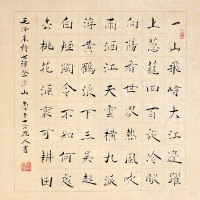 一山飛峙大江邊躍
上葱蘢四百旋冷眼
向洋看世界熱風吹
雨洒江天雲橫九派
浮黃鶴浪下三吳起
白煙陶令不知何處
去桃花源裏可耕田
毛澤東詩七律登廬山